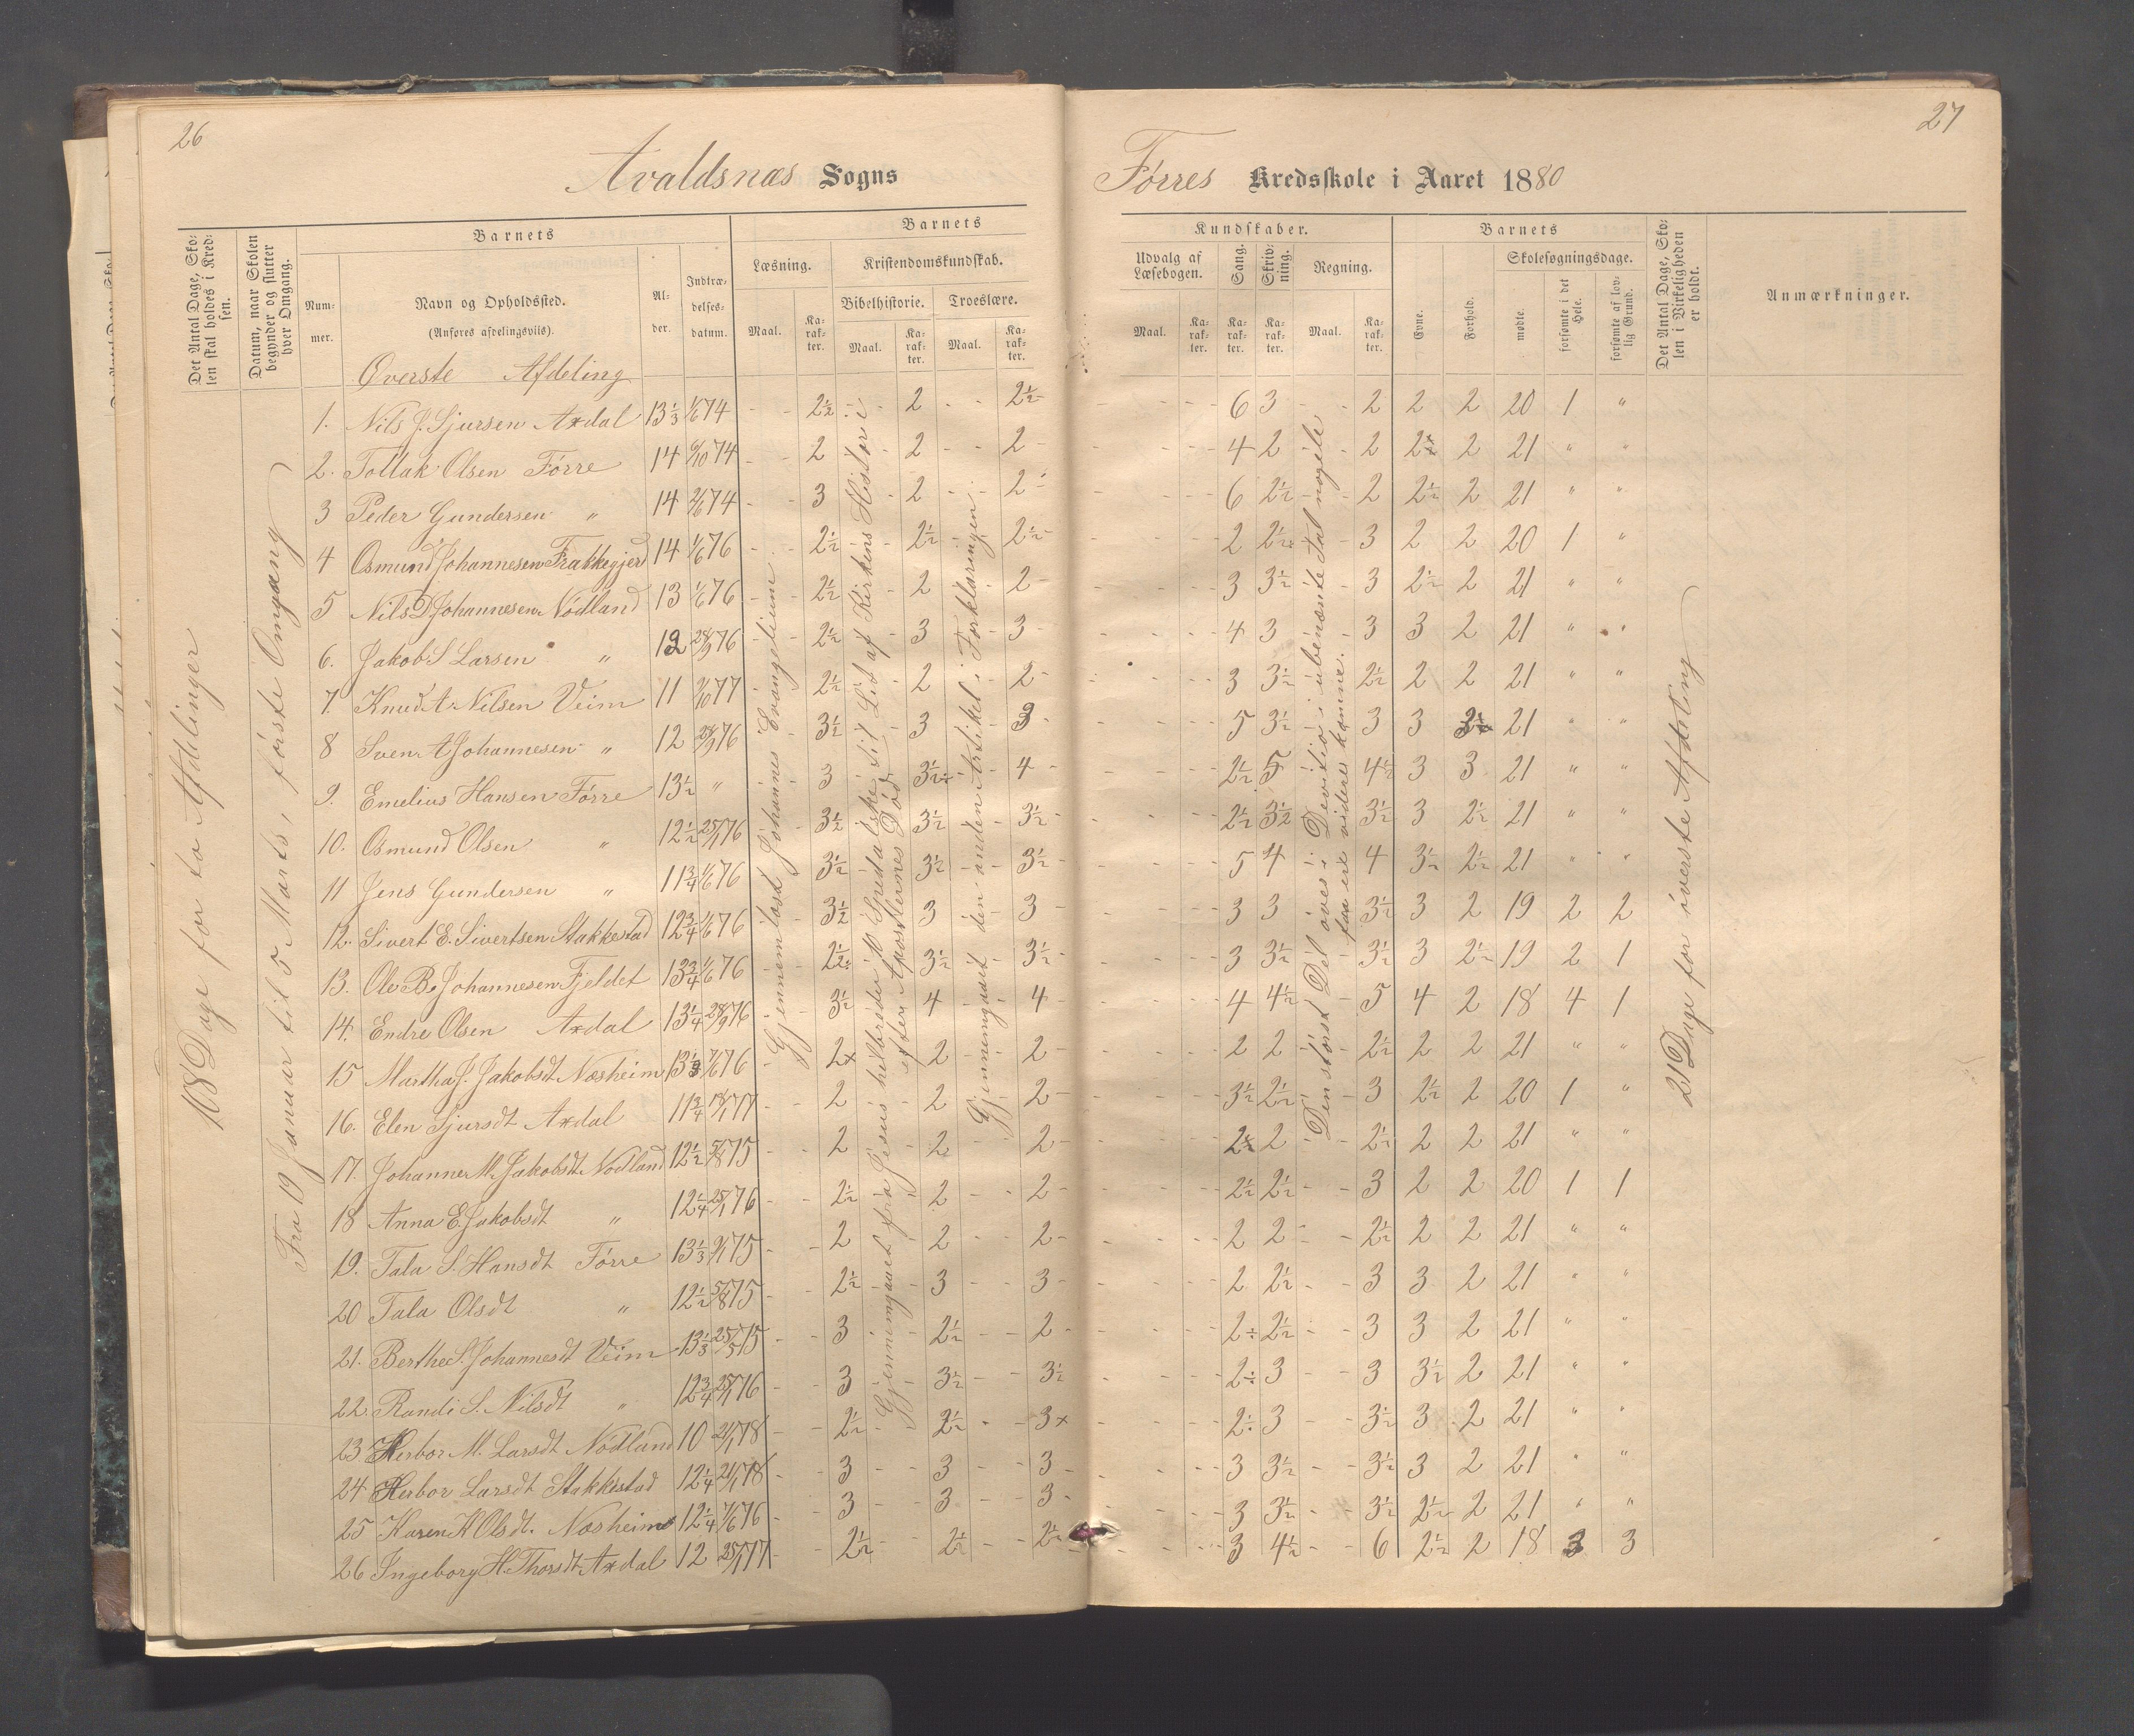 26
Avaldsnæs Sogns
Det Antal Dage, Skolen skal holdes i Kredsen.
Datum, naar Skolen begynder og slutter hver Omgang.
Barnets
Nummer.
Navn og Opholdssted.
(Anføres afdelingsviis).
Alder.
Indtrædelsesdatum.
Barnets
Læsning.
Maal.
Karakter.
Kristendomskundskab.
Bibelhistorie.
Maal.
Karakter.
Troeslære.
Maal.
Karakter.
Øverste Afdeling
108 Dage for to Afdelinger
Fra 19 Januar til 5 Marts, første Omgang
Gjennemlæst Johannes Evangelium
Gjennemgaaet fra Jesus helbreder 10 Spedalske til Lidt af Kirkens Historie
efter Apostlernes Død
Gjennemgaaet den anden Artikel i Forklaringen
1. Nils J. Sjursen Axdal 13 1/3 1/6 74 - - 2 1/2 - - 2 - - 2 1/2 -
2. Tollak Olsen Førre 14 6/10 74 - - 2 - 2 - - 2 -
3 Peder Gundersen " 14 2/6 74 - - 3 - 2 - - 2 -
4 Osmund Johannesen Frakkegjerd 14 1/6 76 - - 2 1/2 - - 2 1/2 - - 2 1/2 -
5 Nils D Johannesen Nødland 13 1/6 76 - - 2 1/2 - 2 - - 2 -
6. Jakob S Larsen " 12 28/9 76 - - 2 1/2 - 3 - - 3 -
7. Knud A Nilsen Veim 11 2/10 77 - 2 1/2 - 2 - - 2 -
8 Sven A Johannesen " 12 28/9 76 - 3 1/2 - 3 - - 3 -
9. Emelius Hansen Førre 13 1/2 " - 3 - 3 1/2 - - 4 -
10. Osmund Olsen " 12 1/2 25/1 76 - 3 1/2 - 3 1/2 - - 3 1/2 -
11 Jens Gundersen " 11 3/4 1/6 76 - 3 1/2 - 3 1/2 - - 3 1/2 -
12. Sivert E. Sivertsen Stakkestad 12 3/4 1/6 76 - 3 1/2 - 3 - - 3 -
13. Ole B. Johannesen Fjeldet 13 3/4 1/6 76 - - 2 1/2 - 3 1/2 - - 3 1/2 -
14. Endre Olsen Axdal 13 1/4 28/9 76 - - 3 1/2 - 4 - - 4 -
15 Martha J. Jakobsdt Næsheim 13 1/3 7/6 76 - 2x 2 - 2 -
16. Elen Sjursdt Axdal 11 3/4 18/1 77 - - 2 - 2 - 2 -
17. Johanne M. Jakobsdt Nødland 12 1/2 5/8 75 - - 2 - 2 - 2 -
18 Anna E. Jakobsdt " 12 1/4 25/1 76 - - 2 1/2 - 2 - - 2 -
19. Tala S. Hansdt Førre 13 1/3 9/1 75 - - 2 - 2 - - 2 -
20 Tala Olsdt " 12 1/2 5/8 75 - - 2 1/2 - - 3 - - 3 -
21. Berthe S. Johannesdt Veim 13 1/3 25/5 75 - - 3 - - 2 1/2 - - 2 -
22. Randi S. Nilsdt " 12 3/4 25/1 76 - - 3 - - 3 1/2 - - 3 1/2
23 Herbor M. Larsdt Nødland 10 21/1 78 - - 2 1/2 - - 2 1/2 - - 3x
24 Herbor Larsdt Stakkestad 12 1/4 21/1 78 - - 3 - - 3 - - 3 -
25 Karen K Olsdt. Næsheim 12 1/4 7/6 76 - - 3 - - 3 - - 3 -
26 Ingeborg H. Thorsdt Axdal 12 25/1 77 - - 2 1/2 - - 2 1/2 - - 2 1/2 -
27
Førres Kredsskole i Aaret 1880
Kundskaber.
Udvalg af Læsebogen.
Maal.
Karakter.
Sang.
Karakter.
Skrivning.
Karakter.
Regning.
Maal.
Karakter.
Barnets
Evne.
Forhold.
Skolesøgningsdage.
mødte.
forsømte i det Hele.
forsømte af lovlig Grund.
Det Antal Dage, Skolen i Virkeligheden er holdt.
Anmærkninger.
Den størst Del øves i Division i ubenævnte Tal nogle
faa ere videre komne.
21 Dage for øverste Afdeling
6 3 - - 2 2 2 20 1 "
4 2 - 2 2x 2 21 " "
6 2 1/2 - - 2 2 1/2 2 21 " "
2 2 1/2 - 3 2 2 20 1 "
3 3 1/2 - 3 2 1/2 2 21 " "
4 3 - 3 3 2 21 " "
3 3 1/2 2 1/2 2 2 21 " "
5 3 1/2 3 3 2 1/2 21 " "
2 1/2 5 4 1/2 3 3 21 " "
2 1/2 3 1/2 3 1/2 3 2 1/2 21 " "
5 4 4 3 1/2 2 1/2 21 " "
3 3 3 1/2 3 2 19 2 2
3 3 1/2 3 1/2 3 2 1/2 19 2 1
4 4 1/2 - 5 4 2 18 4 1
2 2 - 2 1/2 2 2 21 " "
3 1/2 2 1/2 - 3 2 1/2 2 20 1 "
2x 2 - 2 1/2 2 2 21 " "
2 1/2 2 1/2 - - 3 2 2 20 1 1
2 2 - - 2 1/2 2 2 21 " "
2 2 1/2 - - 3 3 2 21 " "
2÷ 2 1/2 - - 3 3 2 21 " "
2÷ 3 - - 3 3 1/2 2 21 " "
2÷ 3 - - 3 1/2 3 2 21 " "
3 3 1/2 - - 3 1/2 3 2 21 " "
3 3 1/2 - - 3 1/2 2 1/2 2 21 " "
3 4 1/2 - - 6 2 1/2 2 18 3 3